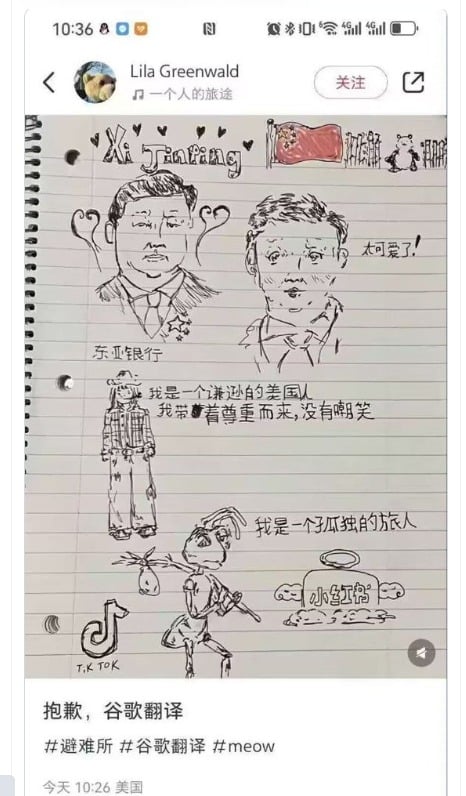 10:36
Lila Greenwald
一个人的旅途
关注
Xi Jinping
太可爱了!
东亚银行
我是一个谦逊的美国人
我带着尊重而来,没有嘲笑
我是一个孤独的旅人
小红书
TIK TOK
抱歉，谷歌翻译
#避难所 #谷歌翻译 #meow
今天 10:26 美国